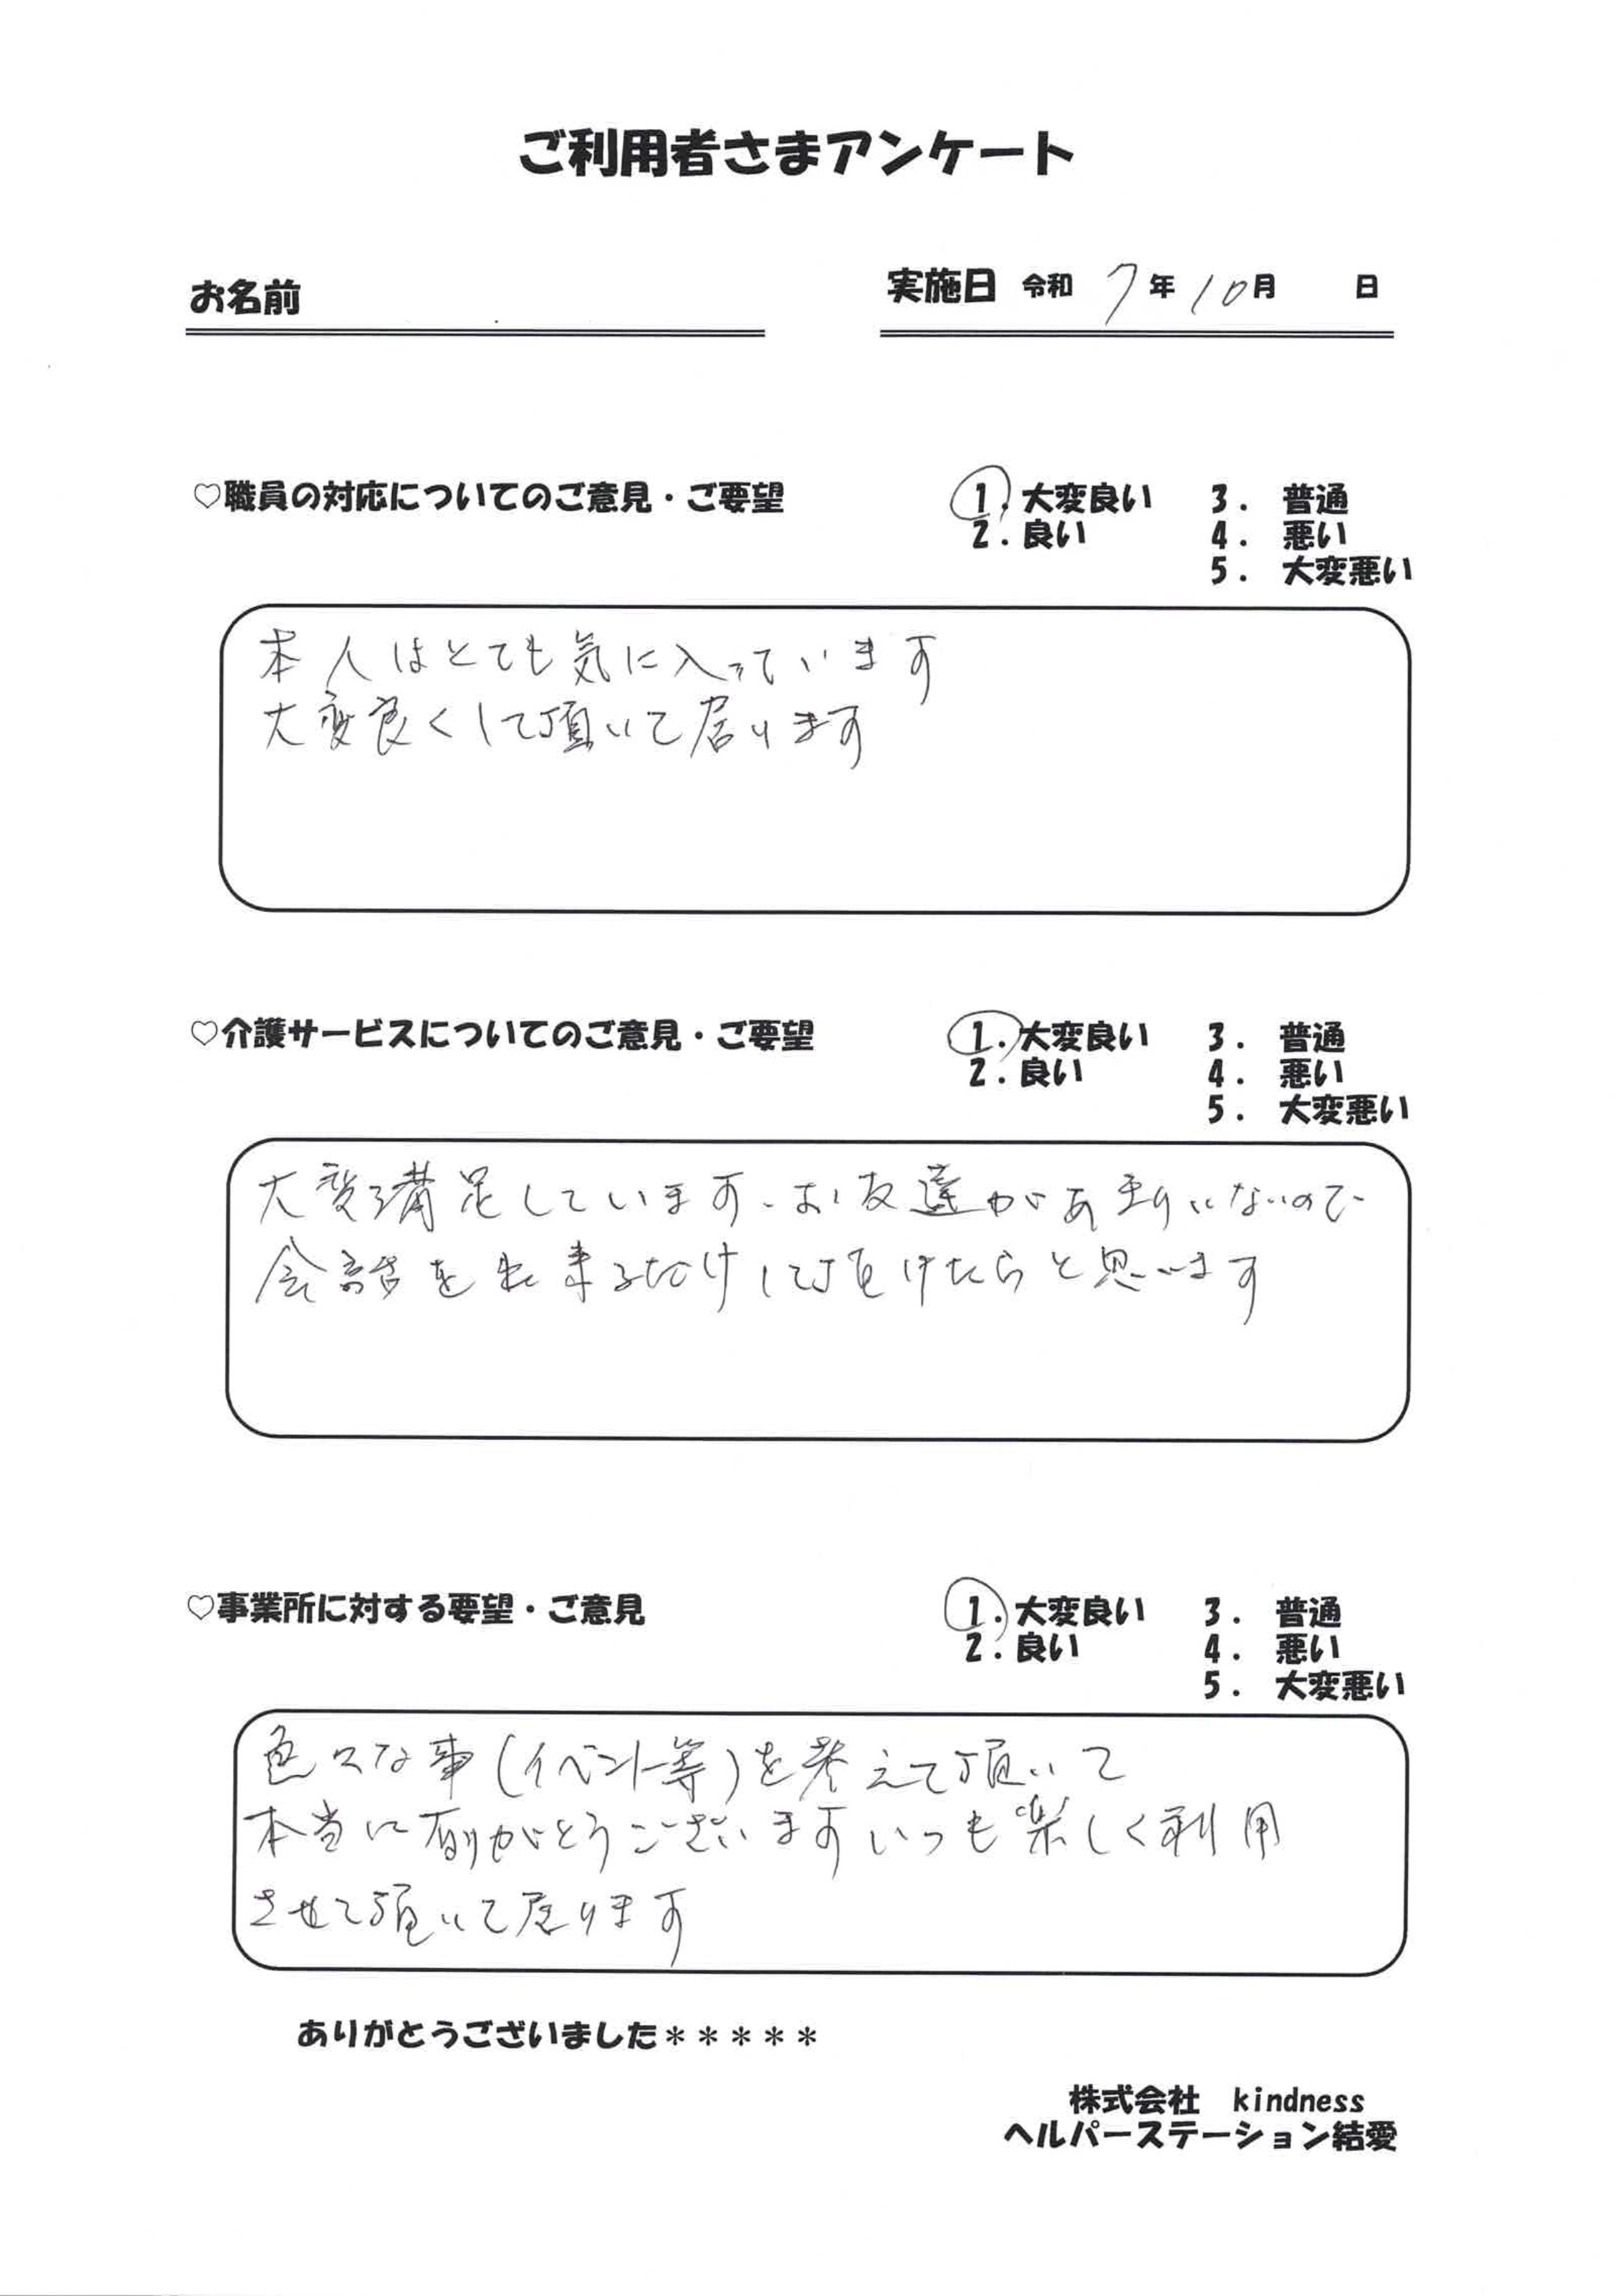 ご利用者さまアンケート
お名前 実施日 令和 7年 10月 日
♡職員の対応についてのご意見・ご要望 1. 大変良い 3. 普通
2. 良い 4. 悪い
5. 大変悪い
本人はとても気に入っています
大変良くして頂いて居ります
♡介護サービスについてのご意見・ご要望 1. 大変良い 3. 普通
2. 良い 4. 悪い
5. 大変悪い
大変満足しています、お友達があまりいないので
会話を出来るだけして頂けたらと思います
♡事業所に対する要望・ご意見 1. 大変良い 3. 普通
2. 良い 4. 悪い
5. 大変悪い
色々な事(イベント等)を考えて頂いて
本当に有りがとうございますいつも楽しく利用
させて頂いて居ります
ありがとうございました＊＊＊＊＊
株式会社 kindness
ヘルパーステーション結愛